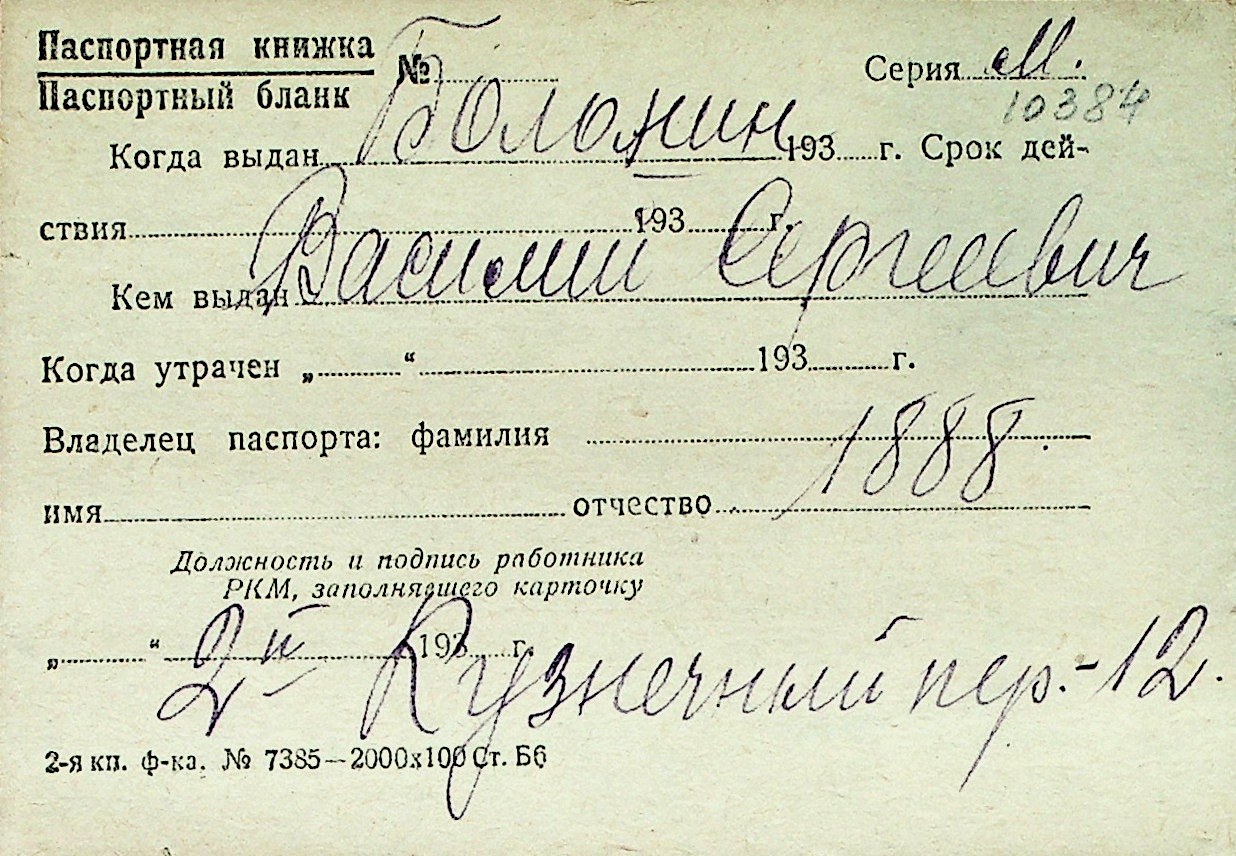 Паспортная книжка
Паспортный бланк
№ Серия М.
10384
Болонин
Когда выдан 193 г. Срок дей-
ствия 193 г.
Василий Сергеевич
Кем выдан
Когда утрачен „ “ 193 г.
Владелец паспорта: фамилия
1888
имя отчество
Должность и подпись работника
РКМ, заполнявшего карточку
„ “ 193 г.
2й Кузнечный пер.-12.
2-я кп. ф-ка. № 7385—2000х100 Ст. Б6